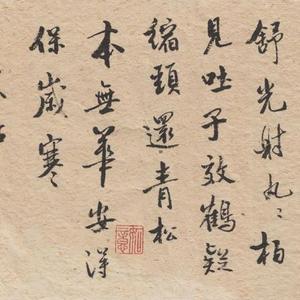 舒光射丸々柏
見吐子效鶴疑
縮頸還青松
本無華安得
保歲寒